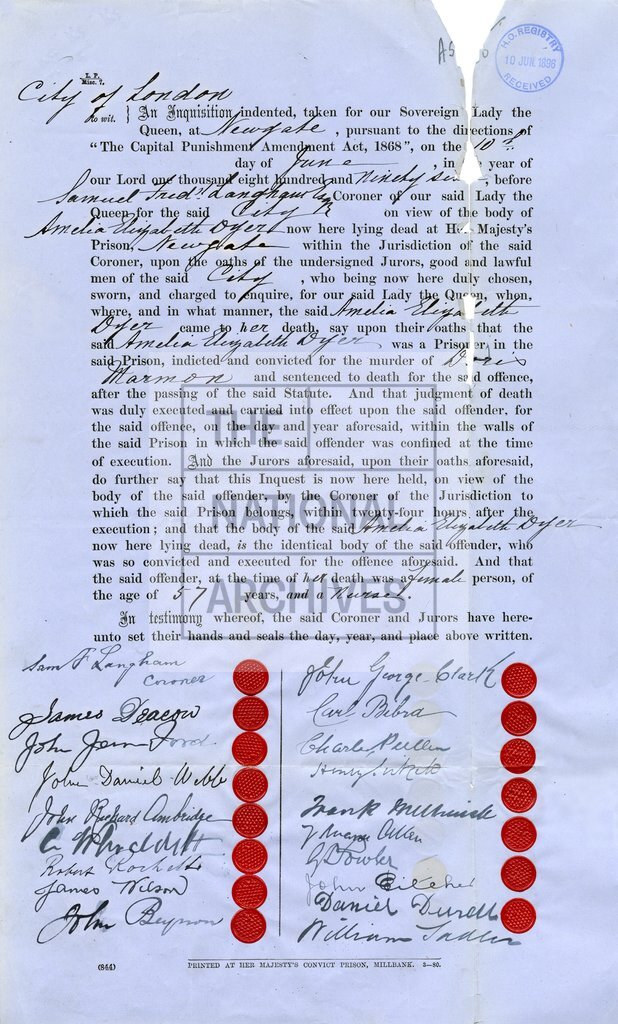 H.O. REGISTRY
10 JUN. 1896
RECEIVED
L. P.
Misc. 7.
City of London
to wit. } An Inquisition indented, taken for our Sovereign Lady the
Queen, at Newgate, pursuant to the directions of
"The Capital Punishment Amendment Act, 1868", on the 10th
day of June, in the year of
our Lord one thousand eight hundred and Ninety six, before
Samuel Fredk Langham Esqr Coroner of our said Lady the
Queen for the said City on view of the body of
Amelia Elizabeth Dyer now here lying dead at Her Majesty's
Prison, Newgate within the Jurisdiction of the said
Coroner, upon the oaths of the undersigned Jurors, good and lawful
men of the said City, who being now here duly chosen,
sworn, and charged to enquire, for our said Lady the Queen, when,
where, and in what manner, the said Amelia Elizabeth
Dyer came to her death, say upon their oaths that the
said Amelia Elizabeth Dyer was a Prisoner in the
said Prison, indicted and convicted for the murder of Doris
Marmon and sentenced to death for the said offence,
after the passing of the said Statute. And that judgment of death
was duly executed and carried into effect upon the said offender, for
the said offence, on the day and year aforesaid, within the walls of
the said Prison in which the said offender was confined at the time
of execution. And the Jurors aforesaid, upon their oaths aforesaid,
do further say that this Inquest is now here held, on view of the
body of the said offender, by the Coroner of the Jurisdiction to
which the said Prison belongs, within twenty-four hours after the
execution; and that the body of the said Amelia Elizabeth Dyer
now here lying dead, is the identical body of the said offender, who
was so convicted and executed for the offence aforesaid. And that
the said offender, at the time of her death was a female person, of
the age of 57 years, and a Nurse.
In testimony whereof, the said Coroner and Jurors have here-
unto set their hands and seals the day, year, and place above written.
THE
NATIONAL
ARCHIVES
Sam F Langham
Coroner
James Deacon
John Ford
John Daniel Webb
John Richard Ambridge
C
Robert Rockett
James Wilson
John Beynon
John George Clark
Carl Bibra
Charles Pullen
Henry
Frank
Allen
G Fowler
John
Daniel Durell
William Sadler
(844)
PRINTED AT HER MAJESTY'S CONVICT PRISON, MILLBANK. 3—80.